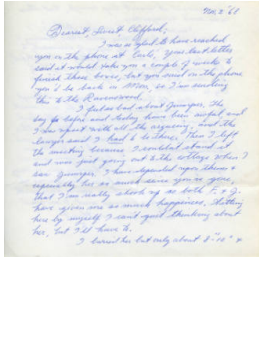 Nov 2 '68
Dearest, Sweet Clifford,
I was so glad to have reached
you on the phone at Carls'. Your last letter
said it would take you a couple of weeks to
finish those boxes, but you said on the phone
you'd be back on Mon, so I'm sending
this to the
I feel so bad about Juniper. The
day before and today have been awful, and
I'm upset with all the arguing, and the
lawyer said I had to be there. Then I left
the meeting because I couldn't stand it
and was just going out to the cottage when I
saw Juniper. I have depended upon them &
especially her so much since you're gone,
that I'm really shook up as both F. & J.
have given me so much happiness. Sitting
here by myself I can't quit thinking about
her, but I'll have to.
I buried her but only about 8"-10" &